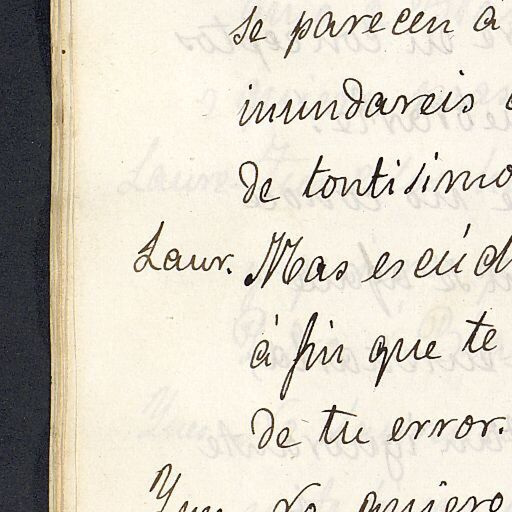 se parecen á
inundareis
de tontisimo
Laur. Mas escúd
á fin que te
de tu error.
quiero